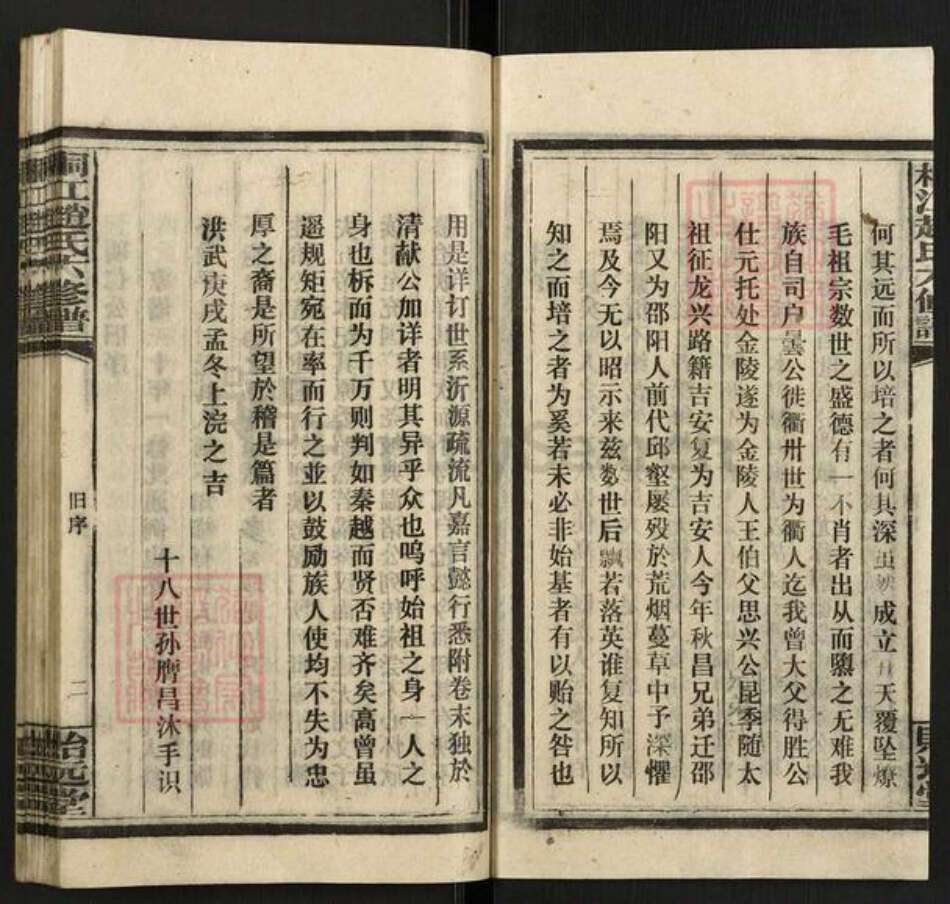 何其远而所以培之者何其深 成立 天覆坠燎
毛祖宗数世之盛德有一不肖者出从而隳之无难我
族自司户昙公徙衢卅世为衢人迄我曾大父得胜公
仕元托处金陵遂为金陵人王伯父思兴公昆季随太
祖征龙兴路籍吉安复为吉安人今年秋昌兄弟迁邵
阳又为邵阳人前代邱壑屡殁於荒烟蔓草中予深懼
焉及今无以昭示来兹数世后飘若落英谁复知所以
知之而培之者为奚若未必非始基者有以贻之咎也
用是详订世系沂源疏流凡嘉言懿行悉附卷末独於
清献公加详者明其异乎众也呜呼始祖之身一人之
身也柝而为千万则判如秦越而贤否难齐矣高曾虽
遥规矩宛在率而行之並以鼓励族人使均不失为忠
厚之裔是所望於稽是篇者
洪武庚戌孟冬上浣之吉
十八世孙膺昌沐手识
桐江趙氏六修譜
旧序
二